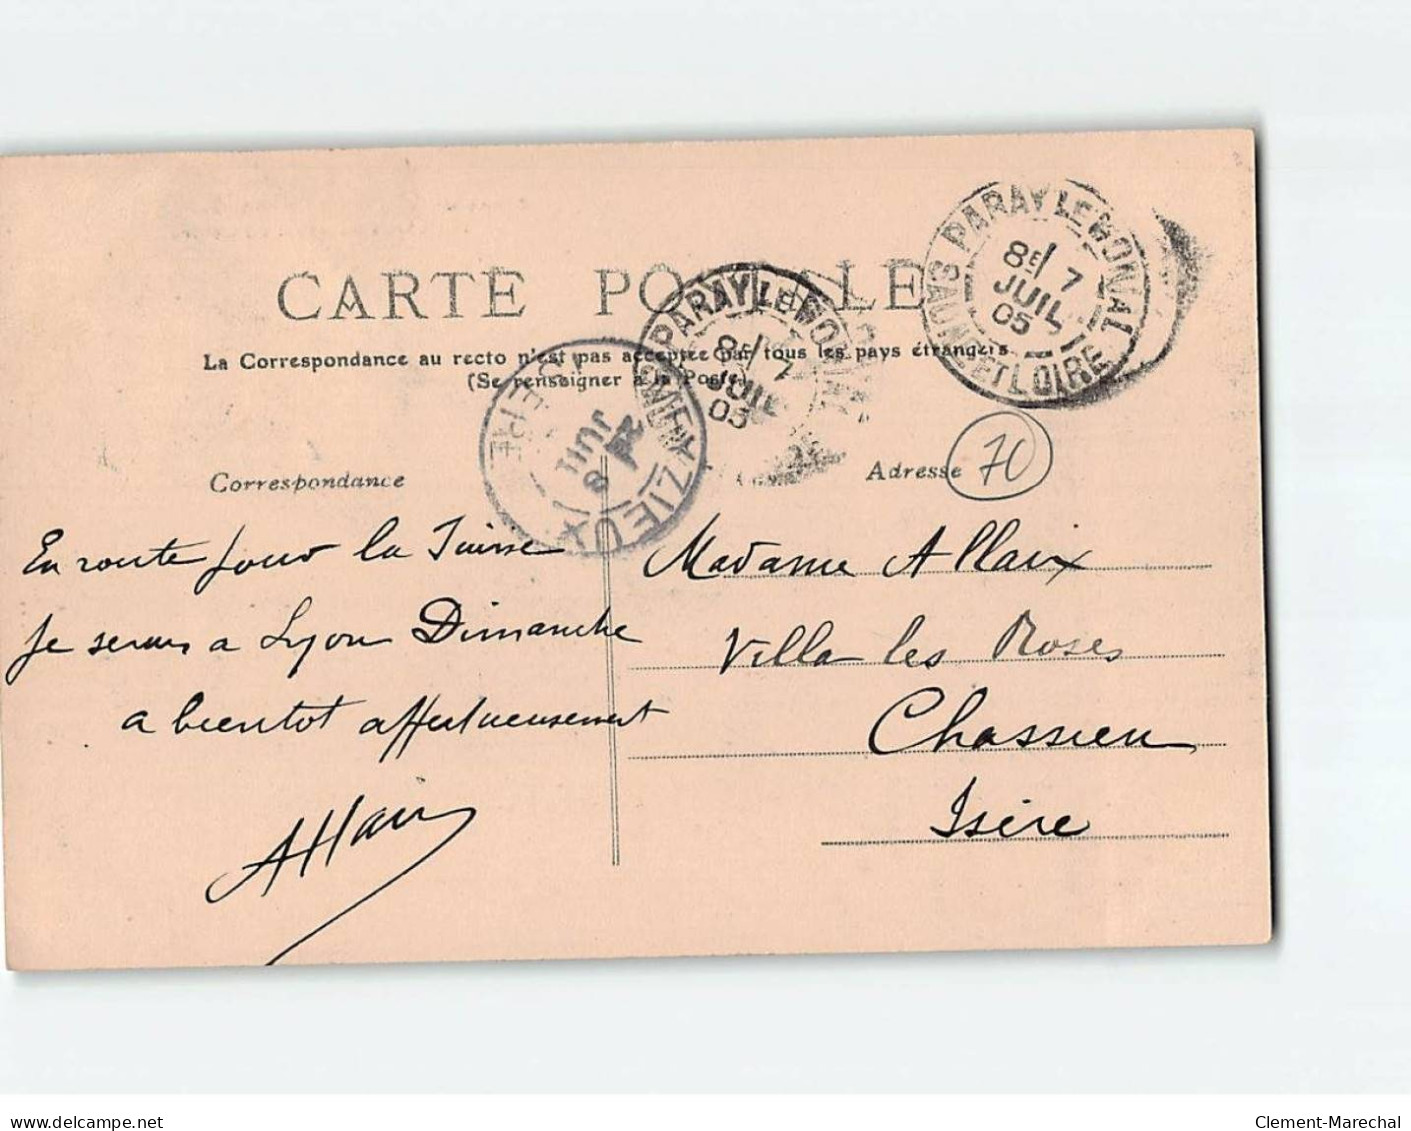 CARTE POSTALE
La Correspondance au recto n'est pas acceptée par tous les pays étrangers
(Se renseigner à la Poste)
PARAY LE MONIAL
8E/ 7
JUIL
05
SAONE ET LOIRE
PARAY LE MONIAL
8E/ 7
JUIL
05
MEYZIEUX
8
JUIL
ISERE
Correspondance
Adresse
70
En route pour la Suisse
je serais a Lyon Dimanche
a bientot affectueusement
Allaix
Madame Allaix
Villa les Roses
Chassieu
Isère
delcampe.net
Clement-Marechal